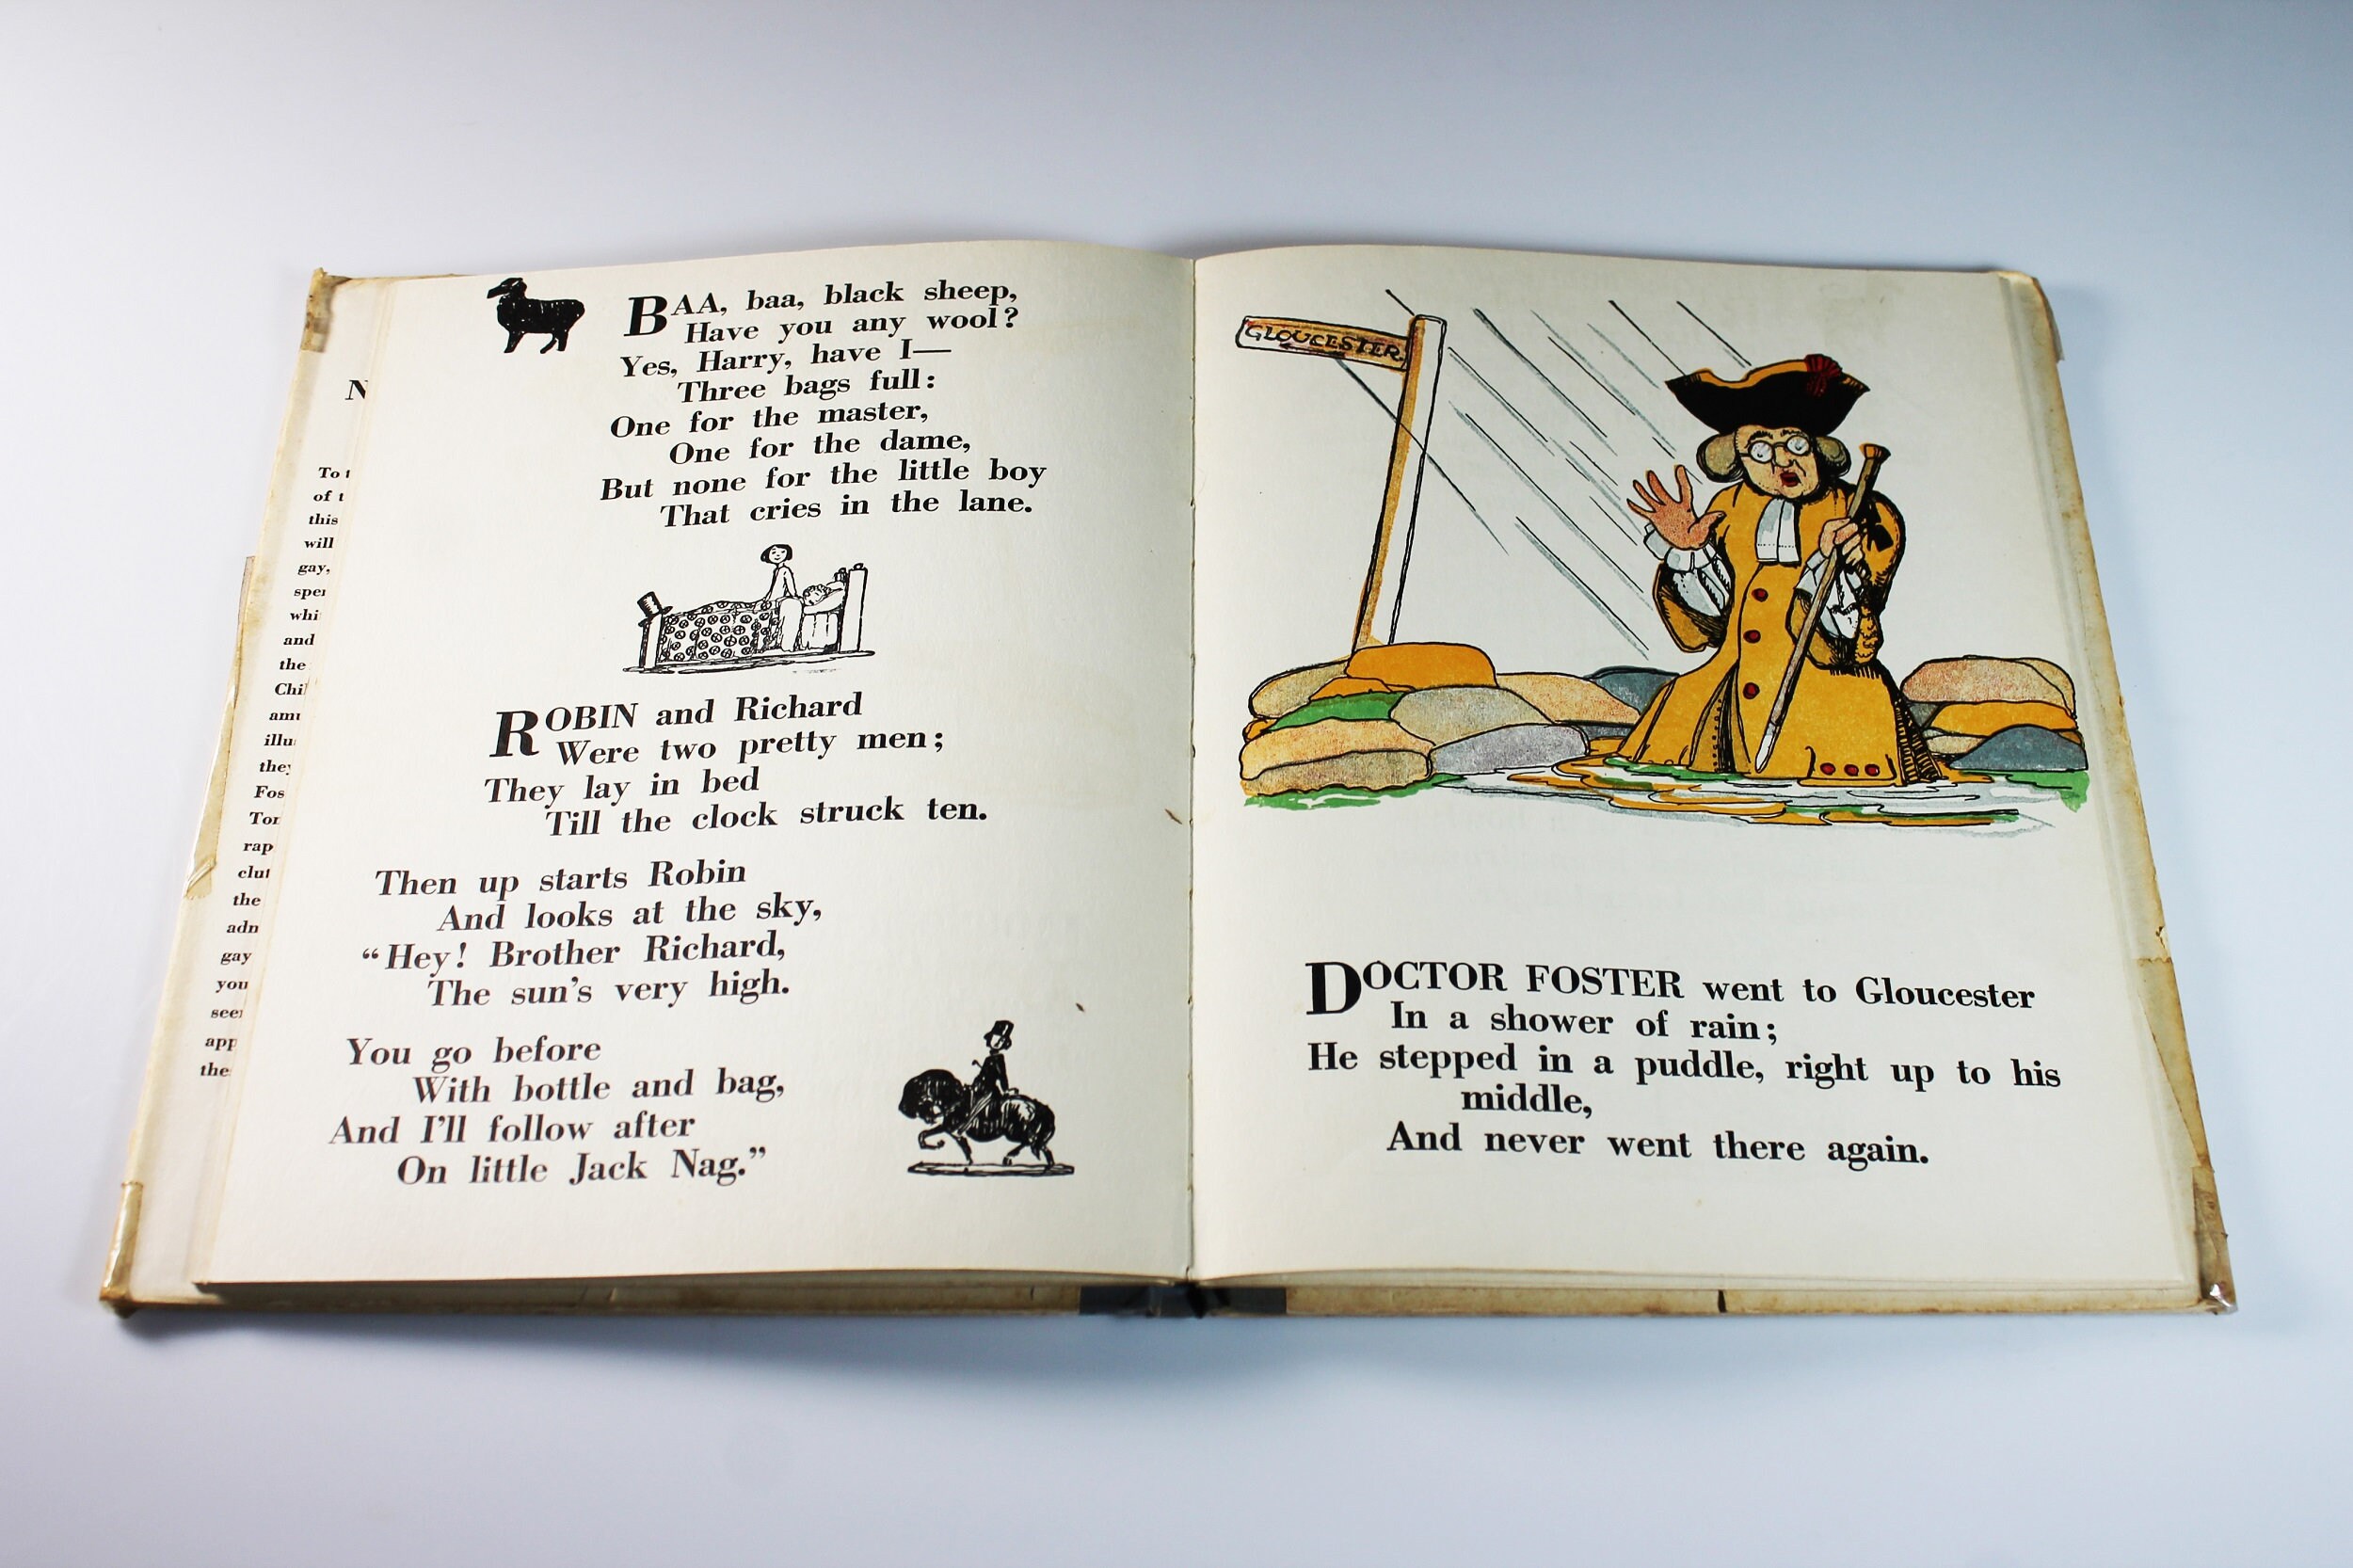 BAA, baa, black sheep,
Have you any wool?
Yes, Harry, have I—
Three bags full:
One for the master,
One for the dame,
But none for the little boy
That cries in the lane.
ROBIN and Richard
Were two pretty men;
They lay in bed
Till the clock struck ten.
Then up starts Robin
And looks at the sky,
“Hey! Brother Richard,
The sun's very high.
You go before
With bottle and bag,
And I'll follow after
On little Jack Nag.”
GLOUCESTER
DOCTOR FOSTER went to Gloucester
In a shower of rain;
He stepped in a puddle, right up to his
middle,
And never went there again.
To
of
this
will
gay,
and
the
the
gay
you